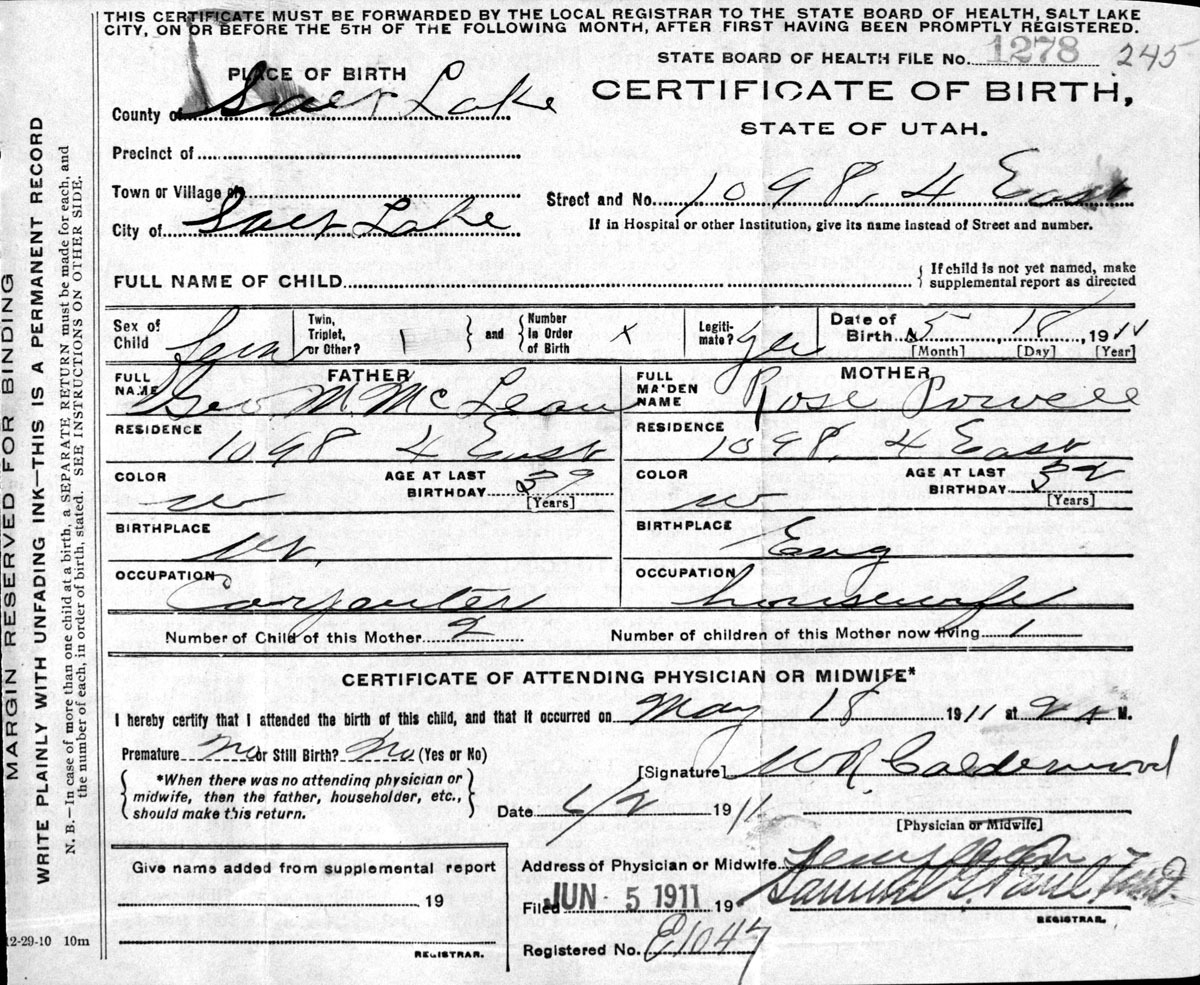 THIS CERTIFICATE MUST BE FORWARDED BY THE LOCAL REGISTRAR TO THE STATE BOARD OF HEALTH, SALT LAKE
CITY, ON OR BEFORE THE 5TH OF THE FOLLOWING MONTH, AFTER FIRST HAVING BEEN PROMPTLY REGISTERED.
STATE BOARD OF HEALTH FILE No. 1278 245
PLACE OF BIRTH
CERTIFICATE OF BIRTH,
STATE OF UTAH.
County of Salt Lake
Precinct of
Town or Village of
Street and No. 1098, 4 East
City of Salt Lake
If in Hospital or other Institution, give its name instead of Street and number.
FULL NAME OF CHILD
If child is not yet named, make
supplemental report as directed
Sex of Child
Twin, Triplet, or Other? 1 and Number in Order of Birth x
Legitimate? yes
Date of Birth 5 18 1911
[Month] [Day] [Year]
FATHER
FULL NAME Geo M. McLean
RESIDENCE 1098 4 East
COLOR w AGE AT LAST BIRTHDAY
[Years]
BIRTHPLACE
OCCUPATION Carpenter
MOTHER
FULL MAIDEN NAME Rose Powell
RESIDENCE 1098, 4 East
COLOR w AGE AT LAST BIRTHDAY 32
[Years]
BIRTHPLACE Eng
OCCUPATION housewife
Number of Child of this Mother 2 Number of children of this Mother now living 1
CERTIFICATE OF ATTENDING PHYSICIAN OR MIDWIFE*
I hereby certify that I attended the birth of this child, and that it occurred on May 18 1911 at 2 A M.
Premature no or Still Birth? no (Yes or No)
[Signature] W R Calderwood
*When there was no attending physician or
midwife, then the father, householder, etc.,
should make this return.
Date 6/2 1911
[Physician or Midwife]
Give name added from supplemental report
19
REGISTRAR.
Address of Physician or Midwife
Filed JUN 5 1911 19
Samuel G. Paul
REGISTRAR.
Registered No. E1047
12-29-10 10m
MARGIN RESERVED FOR BINDING
WRITE PLAINLY WITH UNFADING INK—THIS IS A PERMANENT RECORD
N. B.—In case of more than one child at a birth, a SEPARATE RETURN must be made for each, and
the number of each, in order of birth, stated. SEE INSTRUCTIONS ON OTHER SIDE.